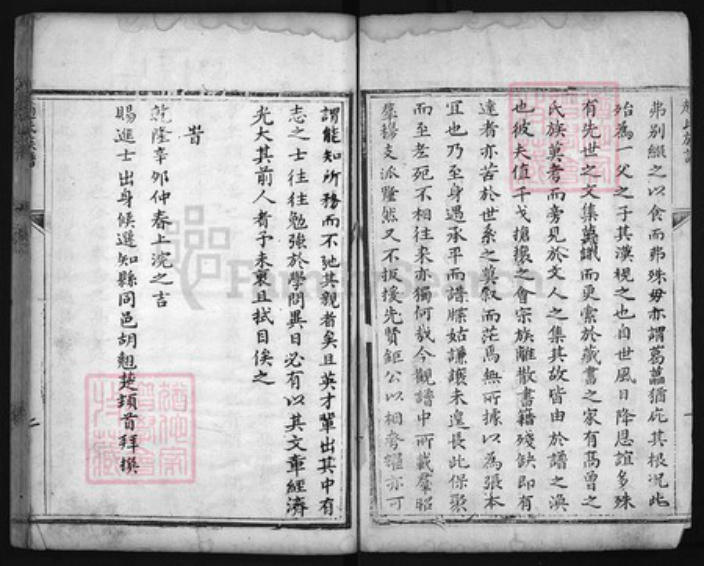 弗別綴之以食而弗殊毋亦謂葛藟猶庇其根況此
殆為一父之子其漠視之也自世風日降恩誼多殊
有先世之文集莫識而更索於藏書之家有高曾之
氏族莫考而旁見於文人之集其故皆由於譜之渙
也彼夫值干戈搶攘之會宗族離散書籍殘缺即有
達者亦苦於世系之莫叙而茫焉無所據以為張本
宜也乃至身遇承平而譜牒姑謙讓未遑長此保聚
而至老死不相往來亦獨何哉今觀譜中所載羣昭
羣穆支派釐然又不扳援先賢鉅公以相夸耀亦可
謂能知所務而不馳其觀者矣且英才輩出其中有
志之士往往勉強於學問異日必有以其文章經濟
光大其前人者予未衰且拭目俟之
旹
乾隆辛卯仲春上浣之吉
賜進士出身候選知縣同邑胡翹楚頓首拜撰
二
FamilySearch